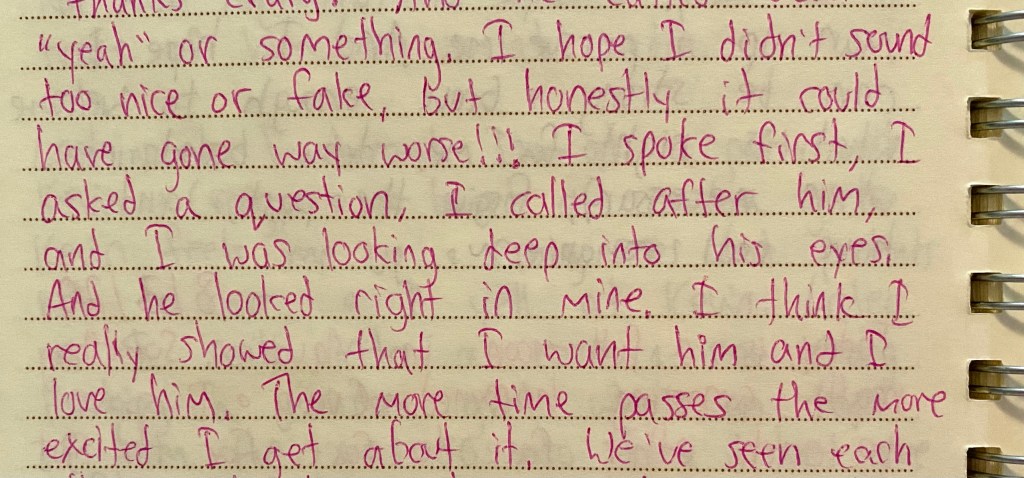 thanks Craig!
"yeah" or something. I hope I didn't sound
too nice or fake, but honestly it could
have gone way worse!!! I spoke first, I
asked a question, I called after him,
and I was looking deep into his eyes.
And he looked right in mine. I think I
really showed that I want him and I
love him. The more time passes the more
excited I get about it. We've seen each